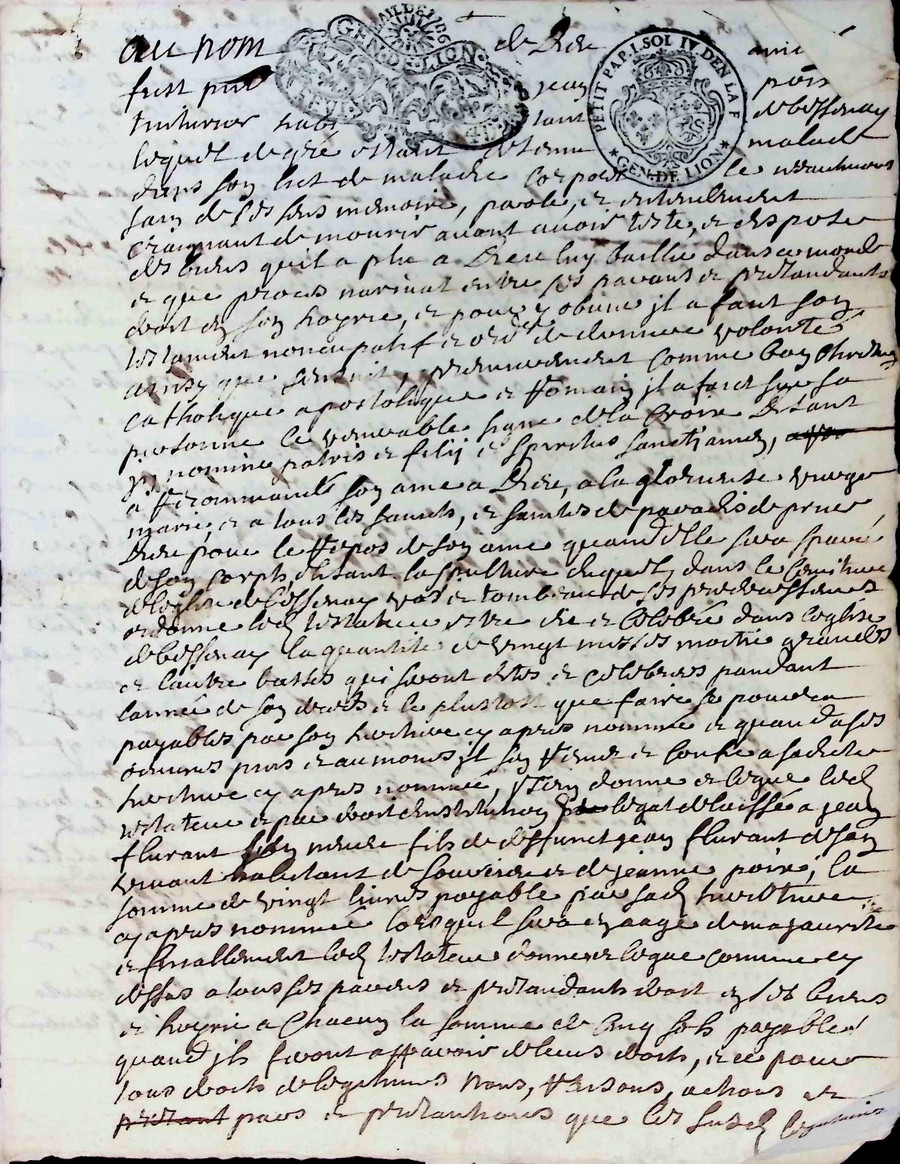 au nom de Dieu amen
fust pnt jean poix
habitant de bessenay
lequel de gré estant detenu malade
dans son lict de maladie corporelle neantmoins
sain de ses sens memoire, parole, et entendement
craignant de mourir avant avoir testé, et dispose
des biens quil a plu a Dieu luy baillié dans ce monde
et que proces narivat entre ses parans et pretandants
droit en son hoyrie, et pour y obvier jl a faict son
testament noncupatif et ordre de derniere volonté
ainsy que sensuit, premierement comme bon Chretien
Catholique apostolique et Romain jl a faict sur sa
personne le venerable signe de la Croix Disant
jn nomine patris et filij et spiritus sancti amen,
a Recommandé son ame a Dieu, a la glorieuse vierge
marie, et a tous les saincts, et sainctes de paradis de prier
Dieu pour le Repos de son ame quand elle sera separé
de son corps, elisant la sepulture duquel dans le Cimitiere
de leglise de bessenay et tombeau de ses predecesseurs
ordonne led testateur estre dit et Celebré dans leglise
de bessenay la quantité de vingt messes moitié grandes
et lautre basses qui seront dites et celebrees pandant
lannée de son deces et le plustost que faire se pourra
payables par son heritiere cy apres nommée et quand a ses
œuvres pies et aumones jl sen Remet et Confie a sadite
heritiere cy apres nommée, Item donne et legue led
testateur et par droit dinstitution legat delaissé a jean
flurant fils de deffunct jean flurant de son
vivant habitant de et de jeanne poix, la
somme de vingt livres payable par sad heritiere
cy apres nommée lorsquil sera en aage de majaurité
et finallement led testateur donne et legue comme cy
dessus a tous ses parens et pretandants droit en ses biens
et hoyrie a Chacun la somme de Cinq sols payable
quand jls feront apparoir de leurs droits, et ce pour
tous droits de legitimes noms, Raisons, actions et
pretant pars et pretantions que les susd legataires
PETIT PAP. 1. SOL IV DEN LA F
GEN. DE LION
GEN. DE LION